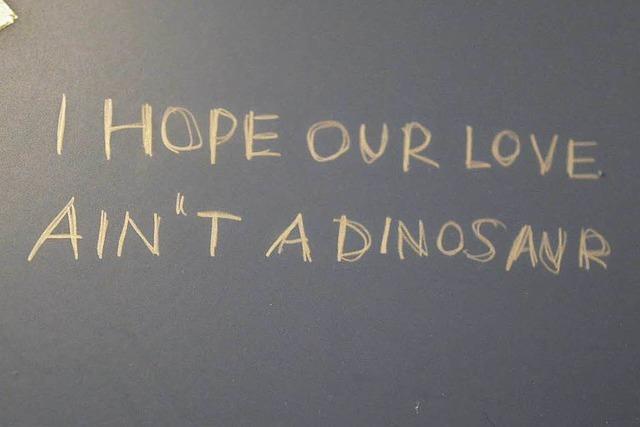 I HOPE OUR LOVE
AIN"T A DINOSAUR